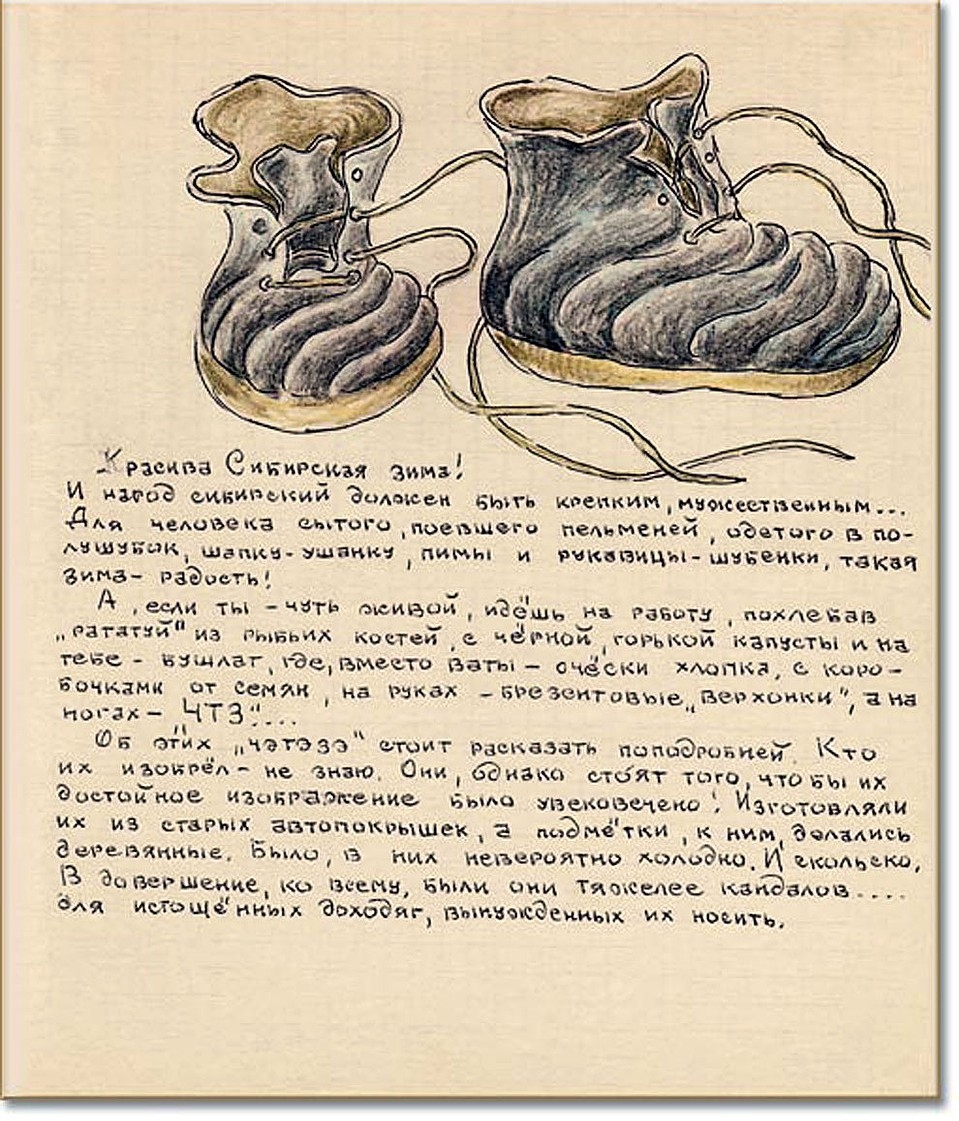 Красива Сибирская зима!
И народ сибирский должен быть крепким, мужественным...
Для человека сытого, поевшего пельменей, одетого в по-
лушубок, шапку-ушанку, пимы и рукавицы-шубенки, такая
зима- радость!
А, если ты - чуть живой, идёшь на работу, похлебав
„рататуй" из рыбьих костей, с чёрной, горькой капусты и на
тебе - бушлат, где, вместо ваты - очёски хлопка, с коро-
бочками от семян, на руках - брезентовые „верхонки", а на
ногах- „ЧТЗ"....
Об этих „чэтэзэ" стоит рассказать поподробней. Кто
их изобрёл- не знаю. Они, однако стоят того, что бы их
достойное изображение было увековечено! Изготовляли
их из старых автопокрышек, а подмётки, к ним, делались
деревянные. Было, в них невероятно холодно. И скользко.
В довершение, ко всему, были они тяжелее кандалов....
для истощённых доходяг, вынужденных их носить.